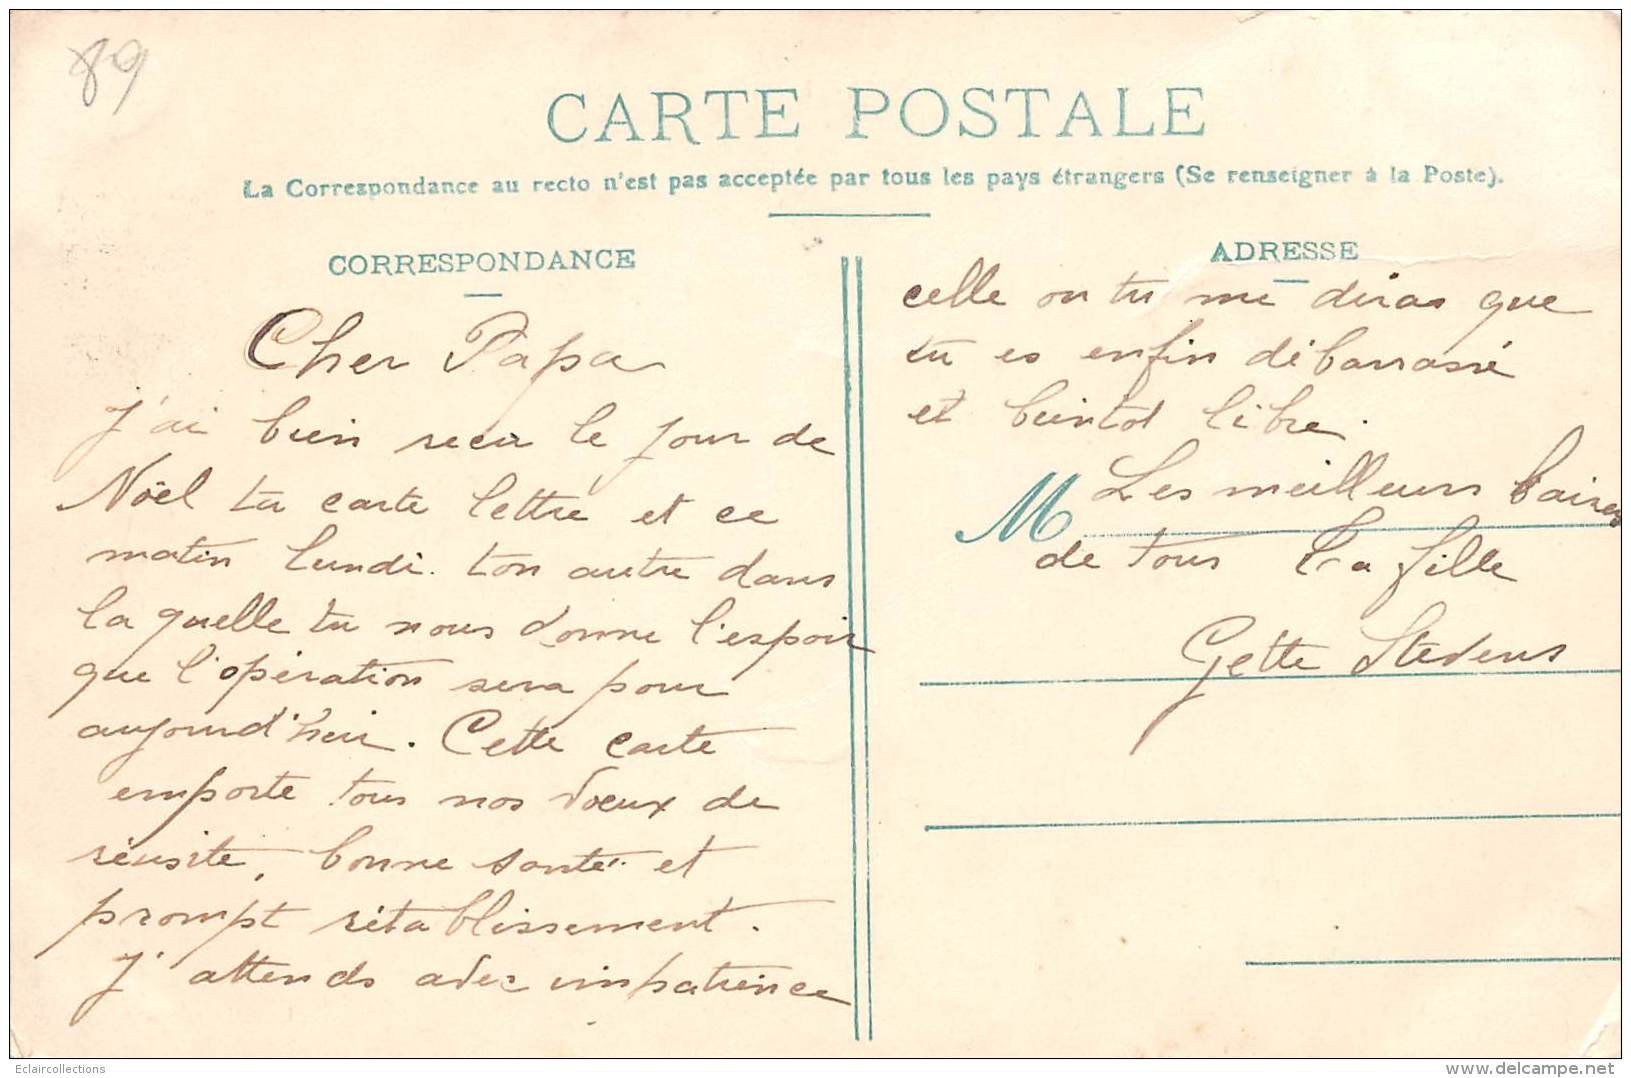 89
CARTE POSTALE
La Correspondance au recto n'est pas acceptée par tous les pays étrangers (Se renseigner à la Poste).
CORRESPONDANCE
Cher Papa
J'ai bien recu le jour de
Noël ta carte lettre et ce
matin lundi. ton autre dans
la quelle tu nous donne l'espoir
que l'opération sera pour
aujourd'hui. Cette carte
emporte tous nos voeux de
réusite, bonne santé et
prompt rétablissement.
J'attends avec impatience
ADRESSE
celle ou tu me diras que
tu es enfin débarrassé
et bientot libre.
M
Les meilleurs baisers
de tous ta fille
Gette Stevens
Eclaircollections
www.delcampe.net